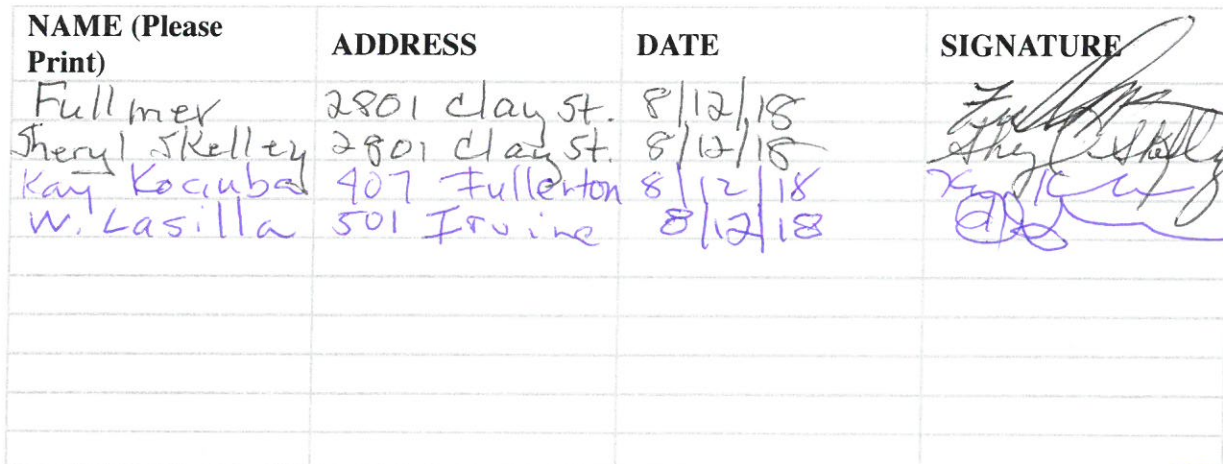 NAME (Please Print) ADDRESS DATE SIGNATURE
Fullmer 2801 Clay St. 8/12/18 Fullmer
Sheryl Skelley 2801 Clay St. 8/12/18 Sheryl Skelley
Kay Kociuba 407 Fullerton 8/12/18
W. Lasilla 501 Irvine 8/12/18